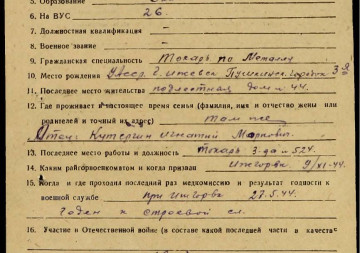 5. Образование
6. На ВУС 26
7. Должностная квалификация –
8. Военное звание –
9. Гражданская специальность Токарь по металлу
10. Место рождения УАССР г. Ижевск Пушкинск. городок 3
11. Последнее место жительства подлестная дом № 44.
12. Где проживает в настоящее время семья (фамилия, имя и отчество жены или
родителей и точный их адрес) там же
Отец: Кутергин Игнатий Маркович.
13. Последнее место работы и должность Токарь 3-да № 524.
14. Каким райгорвоенкоматом и когда призван Ижгорвк 9/XI-44.
15. Когда и где проходил последний раз медкомиссию и результат годности к
военной службе при Ижгорвк 27.5.44.
Годен к строевой сл.
16. Участие в Отечественной войне (в составе какой последней части и в качестве